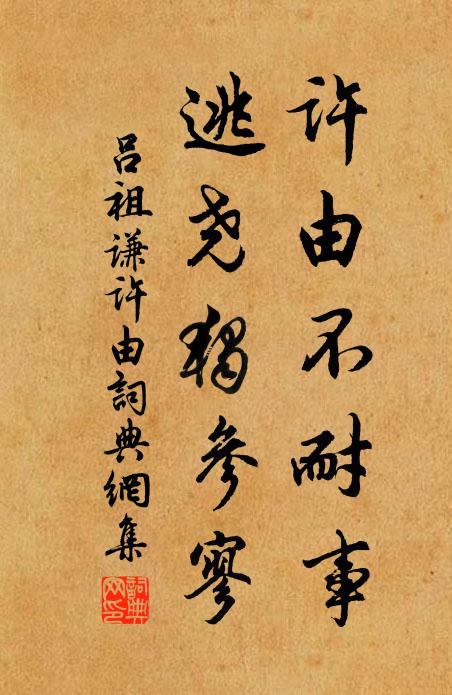 许由不耐事
逃尧独参寥
吕祖谦许由詞典網集
詞典网印